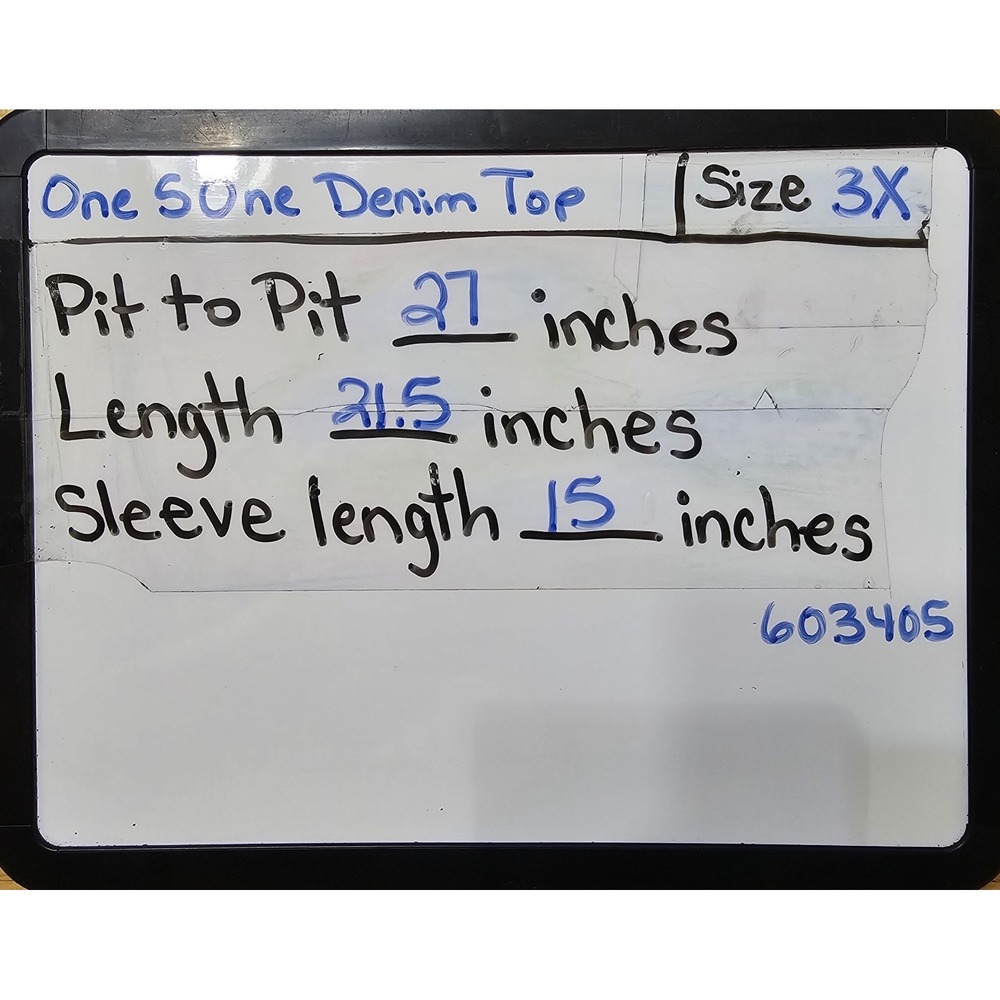 One 5 One Denim Top | Size 3X
Pit to Pit 27 inches
Length 21.5 inches
Sleeve length 15 inches
603405